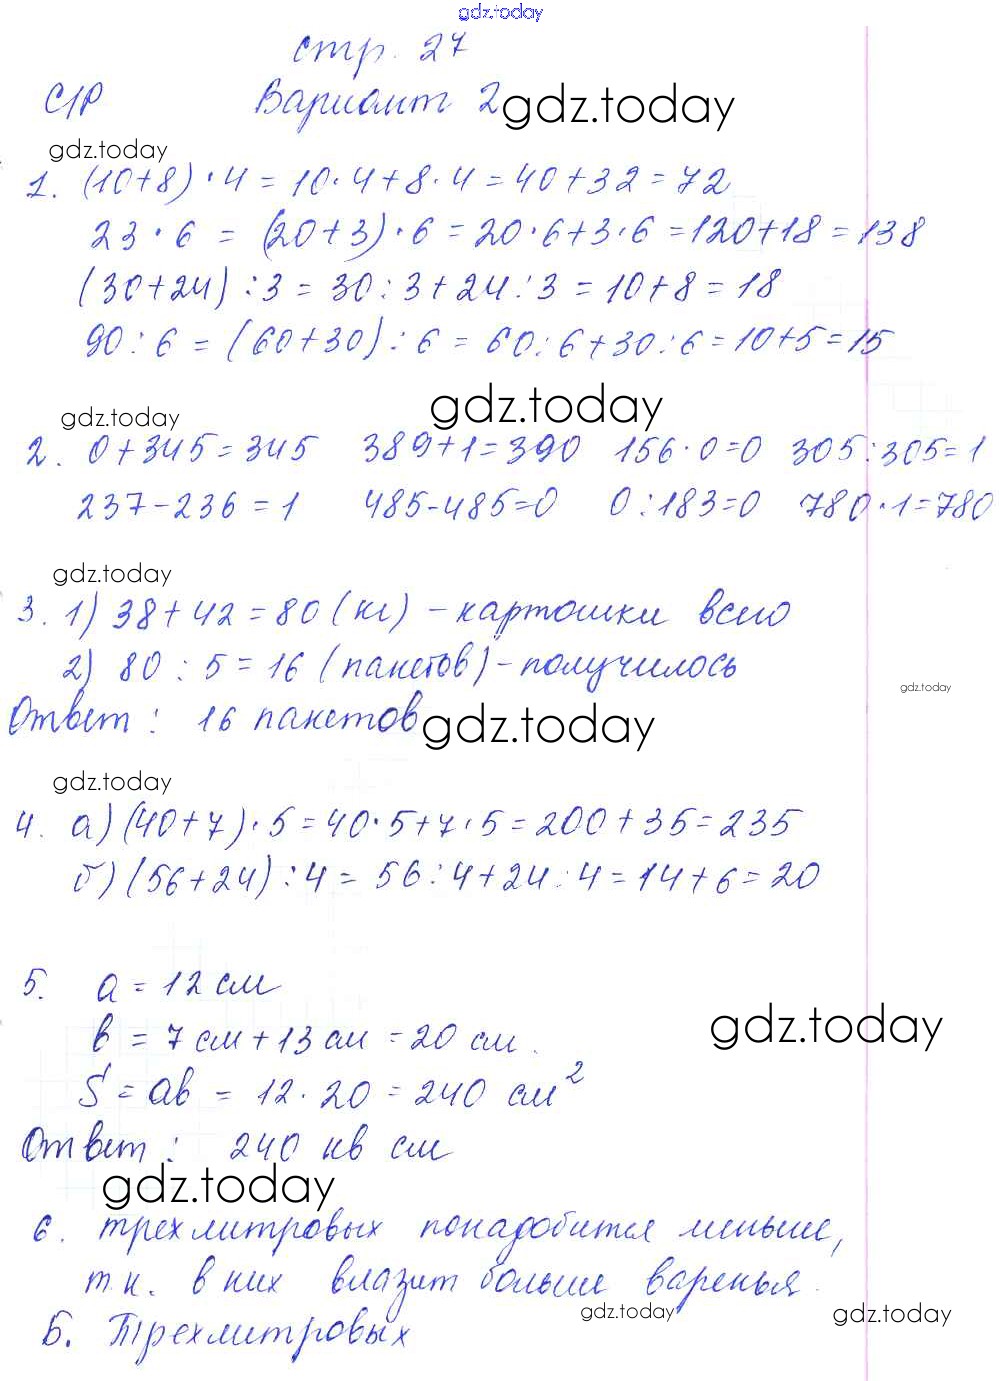 gdz.today
стр. 27
С/Р Вариант 2 gdz.today
gdz.today
1. (10+8)·4=10·4+8·4=40+32=72
23·6=(20+3)·6=20·6+3·6=120+18=138
(30+24):3=30:3+24:3=10+8=18
90:6=(60+30):6=60:6+30:6=10+5=15
gdz.today gdz.today
2. 0+345=345 389+1=390 156·0=0 305:305=1
237-236=1 485-485=0 0:183=0 780·1=780
gdz.today
3. 1) 38+42=80 (кг) - картошки всего
2) 80:5=16 (пакетов) - получилось
gdz.today
Ответ: 16 пакетов gdz.today
gdz.today
4. а) (40+7)·5=40·5+7·5=200+35=235
б) (56+24):4=56:4+24:4=14+6=20
5. a=12 см
gdz.today
в=7 см+13 см=20 см.
S=ав=12·20=240 см²
Ответ: 240 кв см
gdz.today
6. трехлитровых понадобится меньше,
т.к. в них влазит больше варенья.
gdz.today gdz.today
Б. Трехлитровых